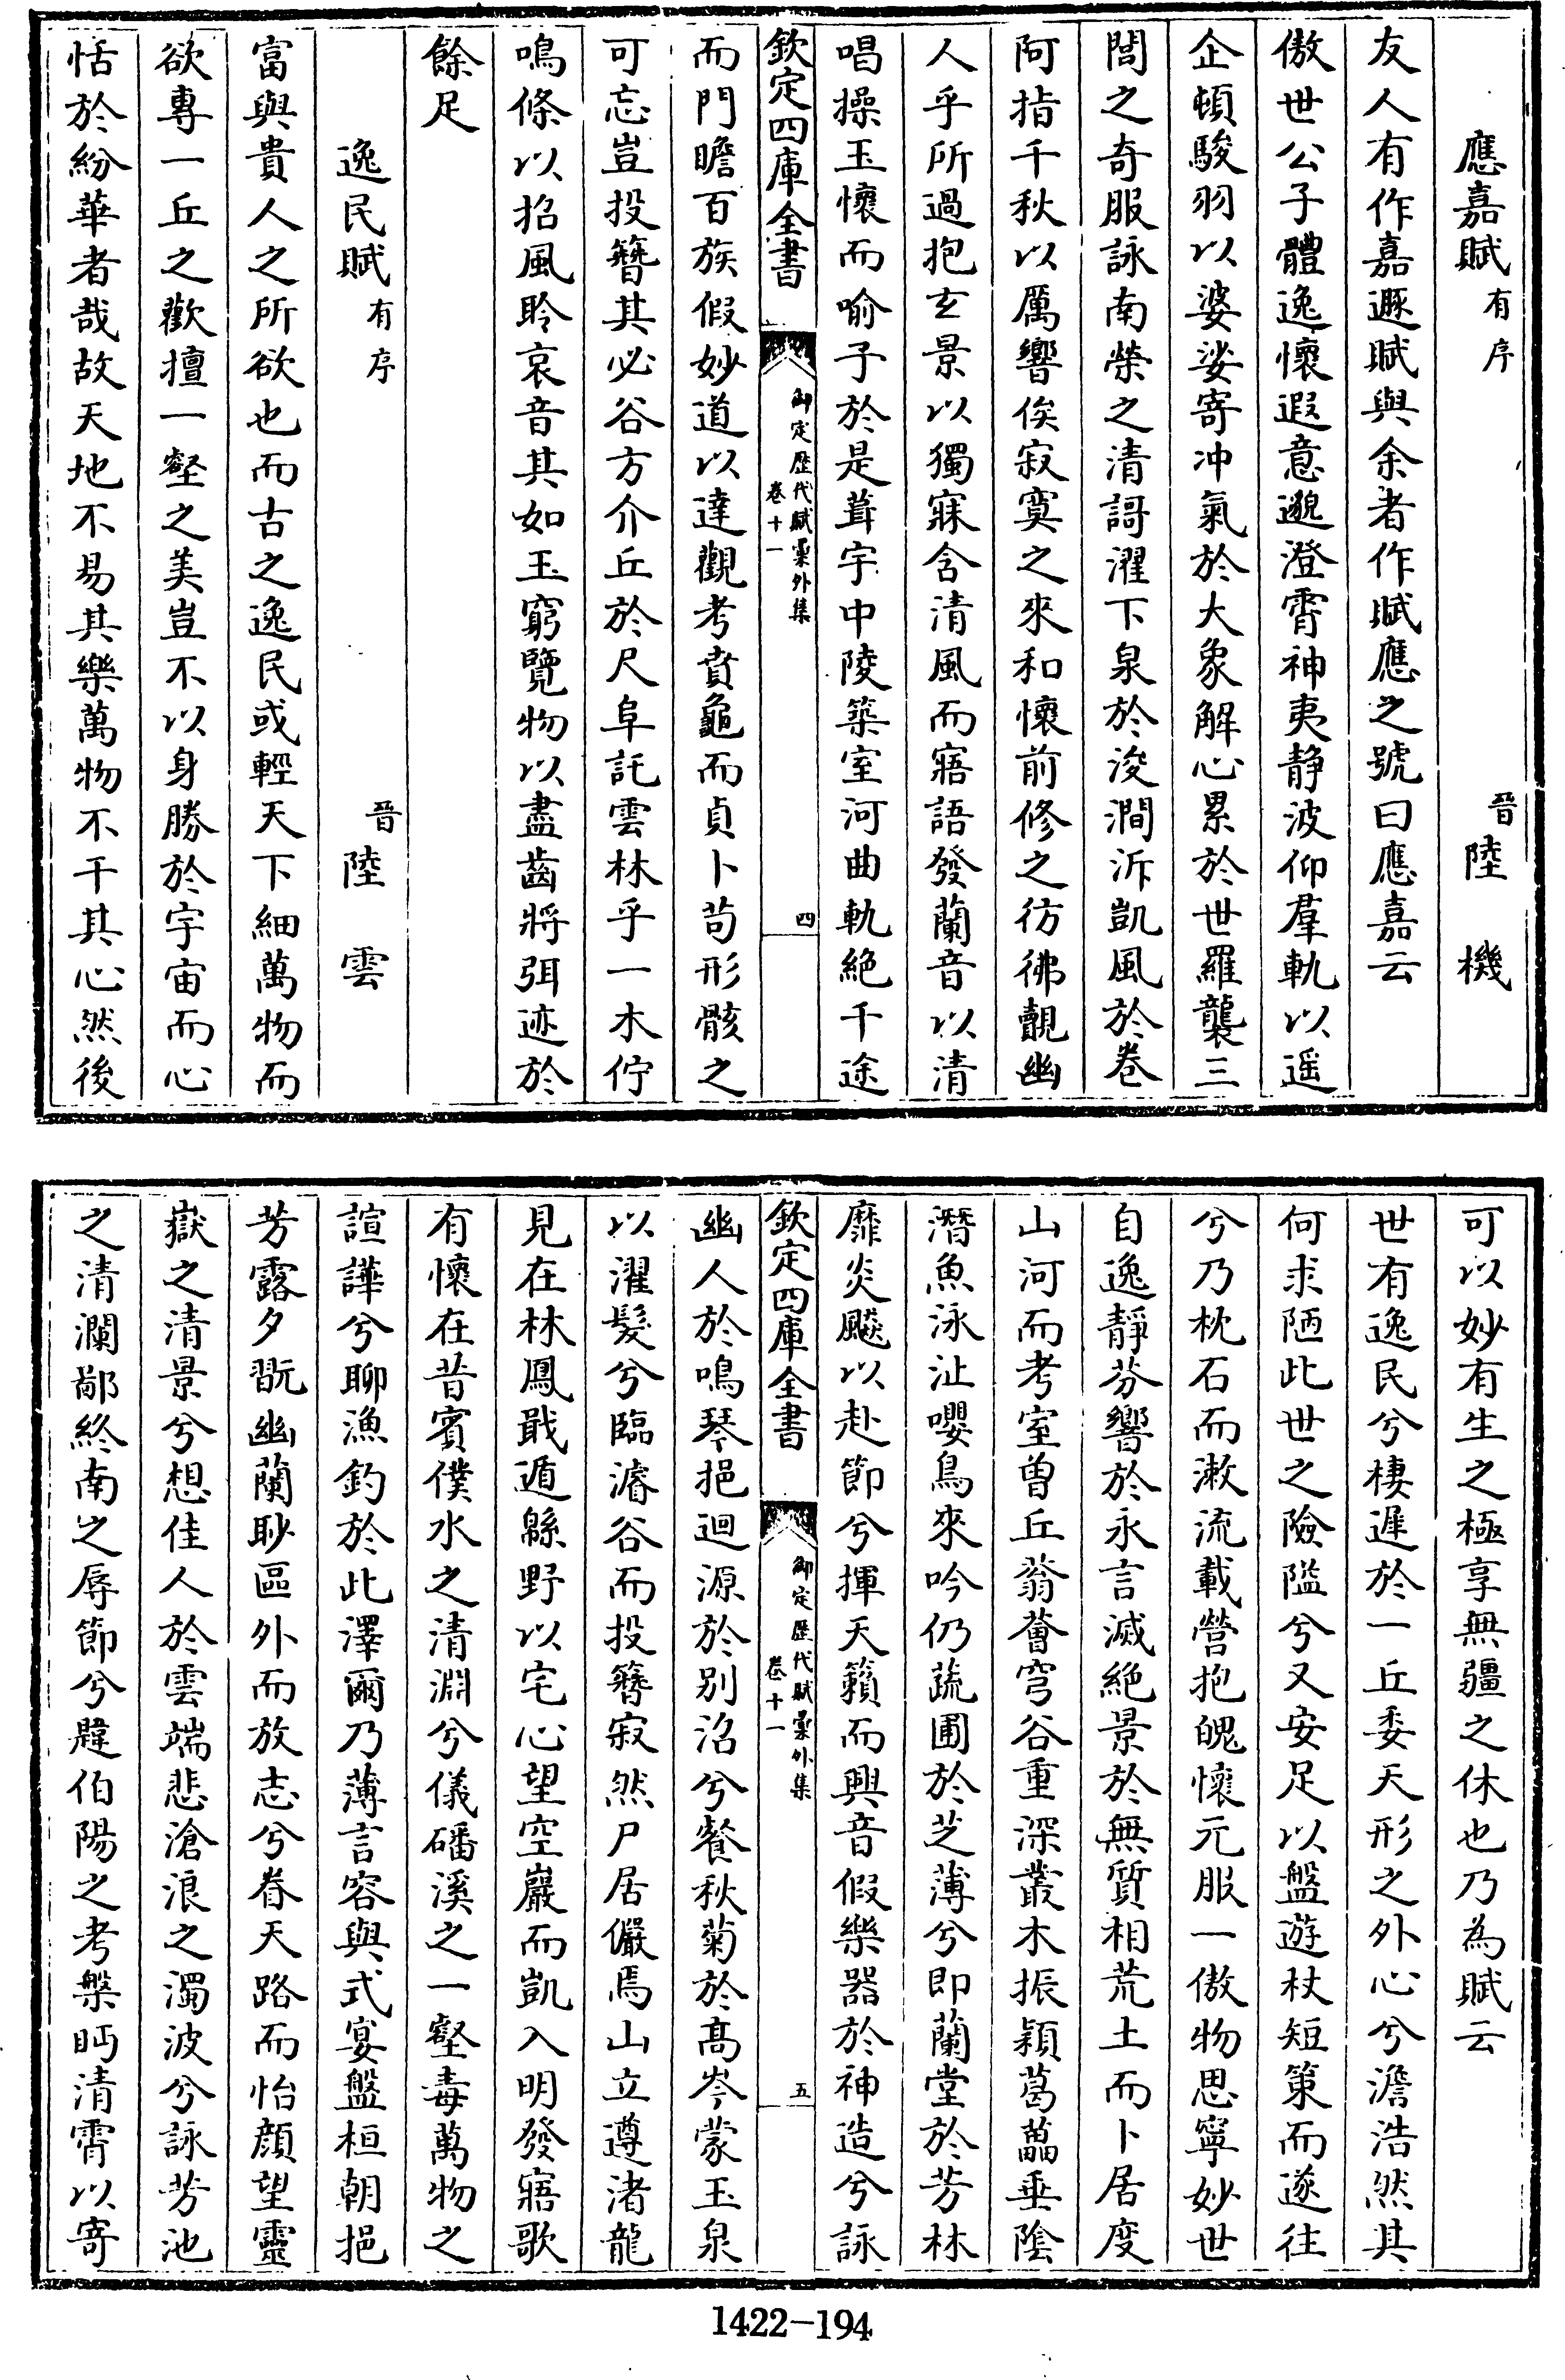 應嘉賦有序　晉陸機
友人有作嘉遯賦與余者作賦應之號曰應嘉云
傲世公子體逸懷遐意邈澄霄神夷静波仰羣軌以遥
企頓駿羽以婆娑寄冲氣於大象解心累於世羅襲三
閭之奇服詠南榮之清謌濯下泉於浚澗泝凱風於卷
阿指千秋以厲響俟寂寞之來和懷前修之彷彿覿幽
人乎所過抱玄景以獨寐含清風而寤語發蘭音以清
唱操玉懷而喻予於是葺宇中陵築室河曲軌絶千途
欽定四庫全書　御定歷代賦彙外集卷十一　四
而門瞻百族假妙道以達觀考賁龜而貞卜苟形骸之
可忘豈投簪其必谷方介丘於尺阜託雲林乎一木佇
鳴條以招風聆哀音其如玉窮覽物以盡齒將弭迹於
餘足
逸民賦有序　晉陸雲
富與貴人之所欲也而古之逸民或輕天下細萬物而
欲專一丘之歡擅一壑之美豈不以身勝於宇宙而心
恬於紛華者哉故天地不易其樂萬物不干其心然後
可以妙有生之極享無疆之休也乃為賦云
世有逸民兮棲遲於一丘委天形之外心兮澹浩然其
何求陋此世之險隘兮又安足以盤遊杖短策而遂往
兮乃枕石而漱流載營抱魄懷元服一傲物思寧妙世
自逸靜芬響於永言滅絶景於無質相荒土而卜居度
山河而考室曽丘蓊薈穹谷重深叢木振穎葛藟垂陰
潛魚泳沚嚶鳥來吟仍蔬圃於芝薄兮即蘭堂於芳林
靡炎飈以赴節兮揮天籟而興音假樂器於神造兮詠
欽定四庫全書　御定歷代賦彙外集卷十一　五
幽人於鳴琴挹迴源於别沼兮餐秋菊於髙岑蒙玉泉
以濯髮兮臨濬谷而投簪寂然尸居儼焉山立遵渚龍
見在林鳳戢遁緜野以宅心望空巖而凱入明發寤歌
有懷在昔賓僕水之清淵兮儀磻溪之一壑毒萬物之
諠譁兮聊漁釣於此澤爾乃薄言容與式宴盤桓朝挹
芳露夕翫幽蘭眇區外而放志兮眷天路而怡顔望靈
嶽之清景兮想佳人於雲端悲滄浪之濁波兮詠芳池
之清瀾鄙終南之辱節兮韙伯陽之考槃眄清霄以寄
1422-194